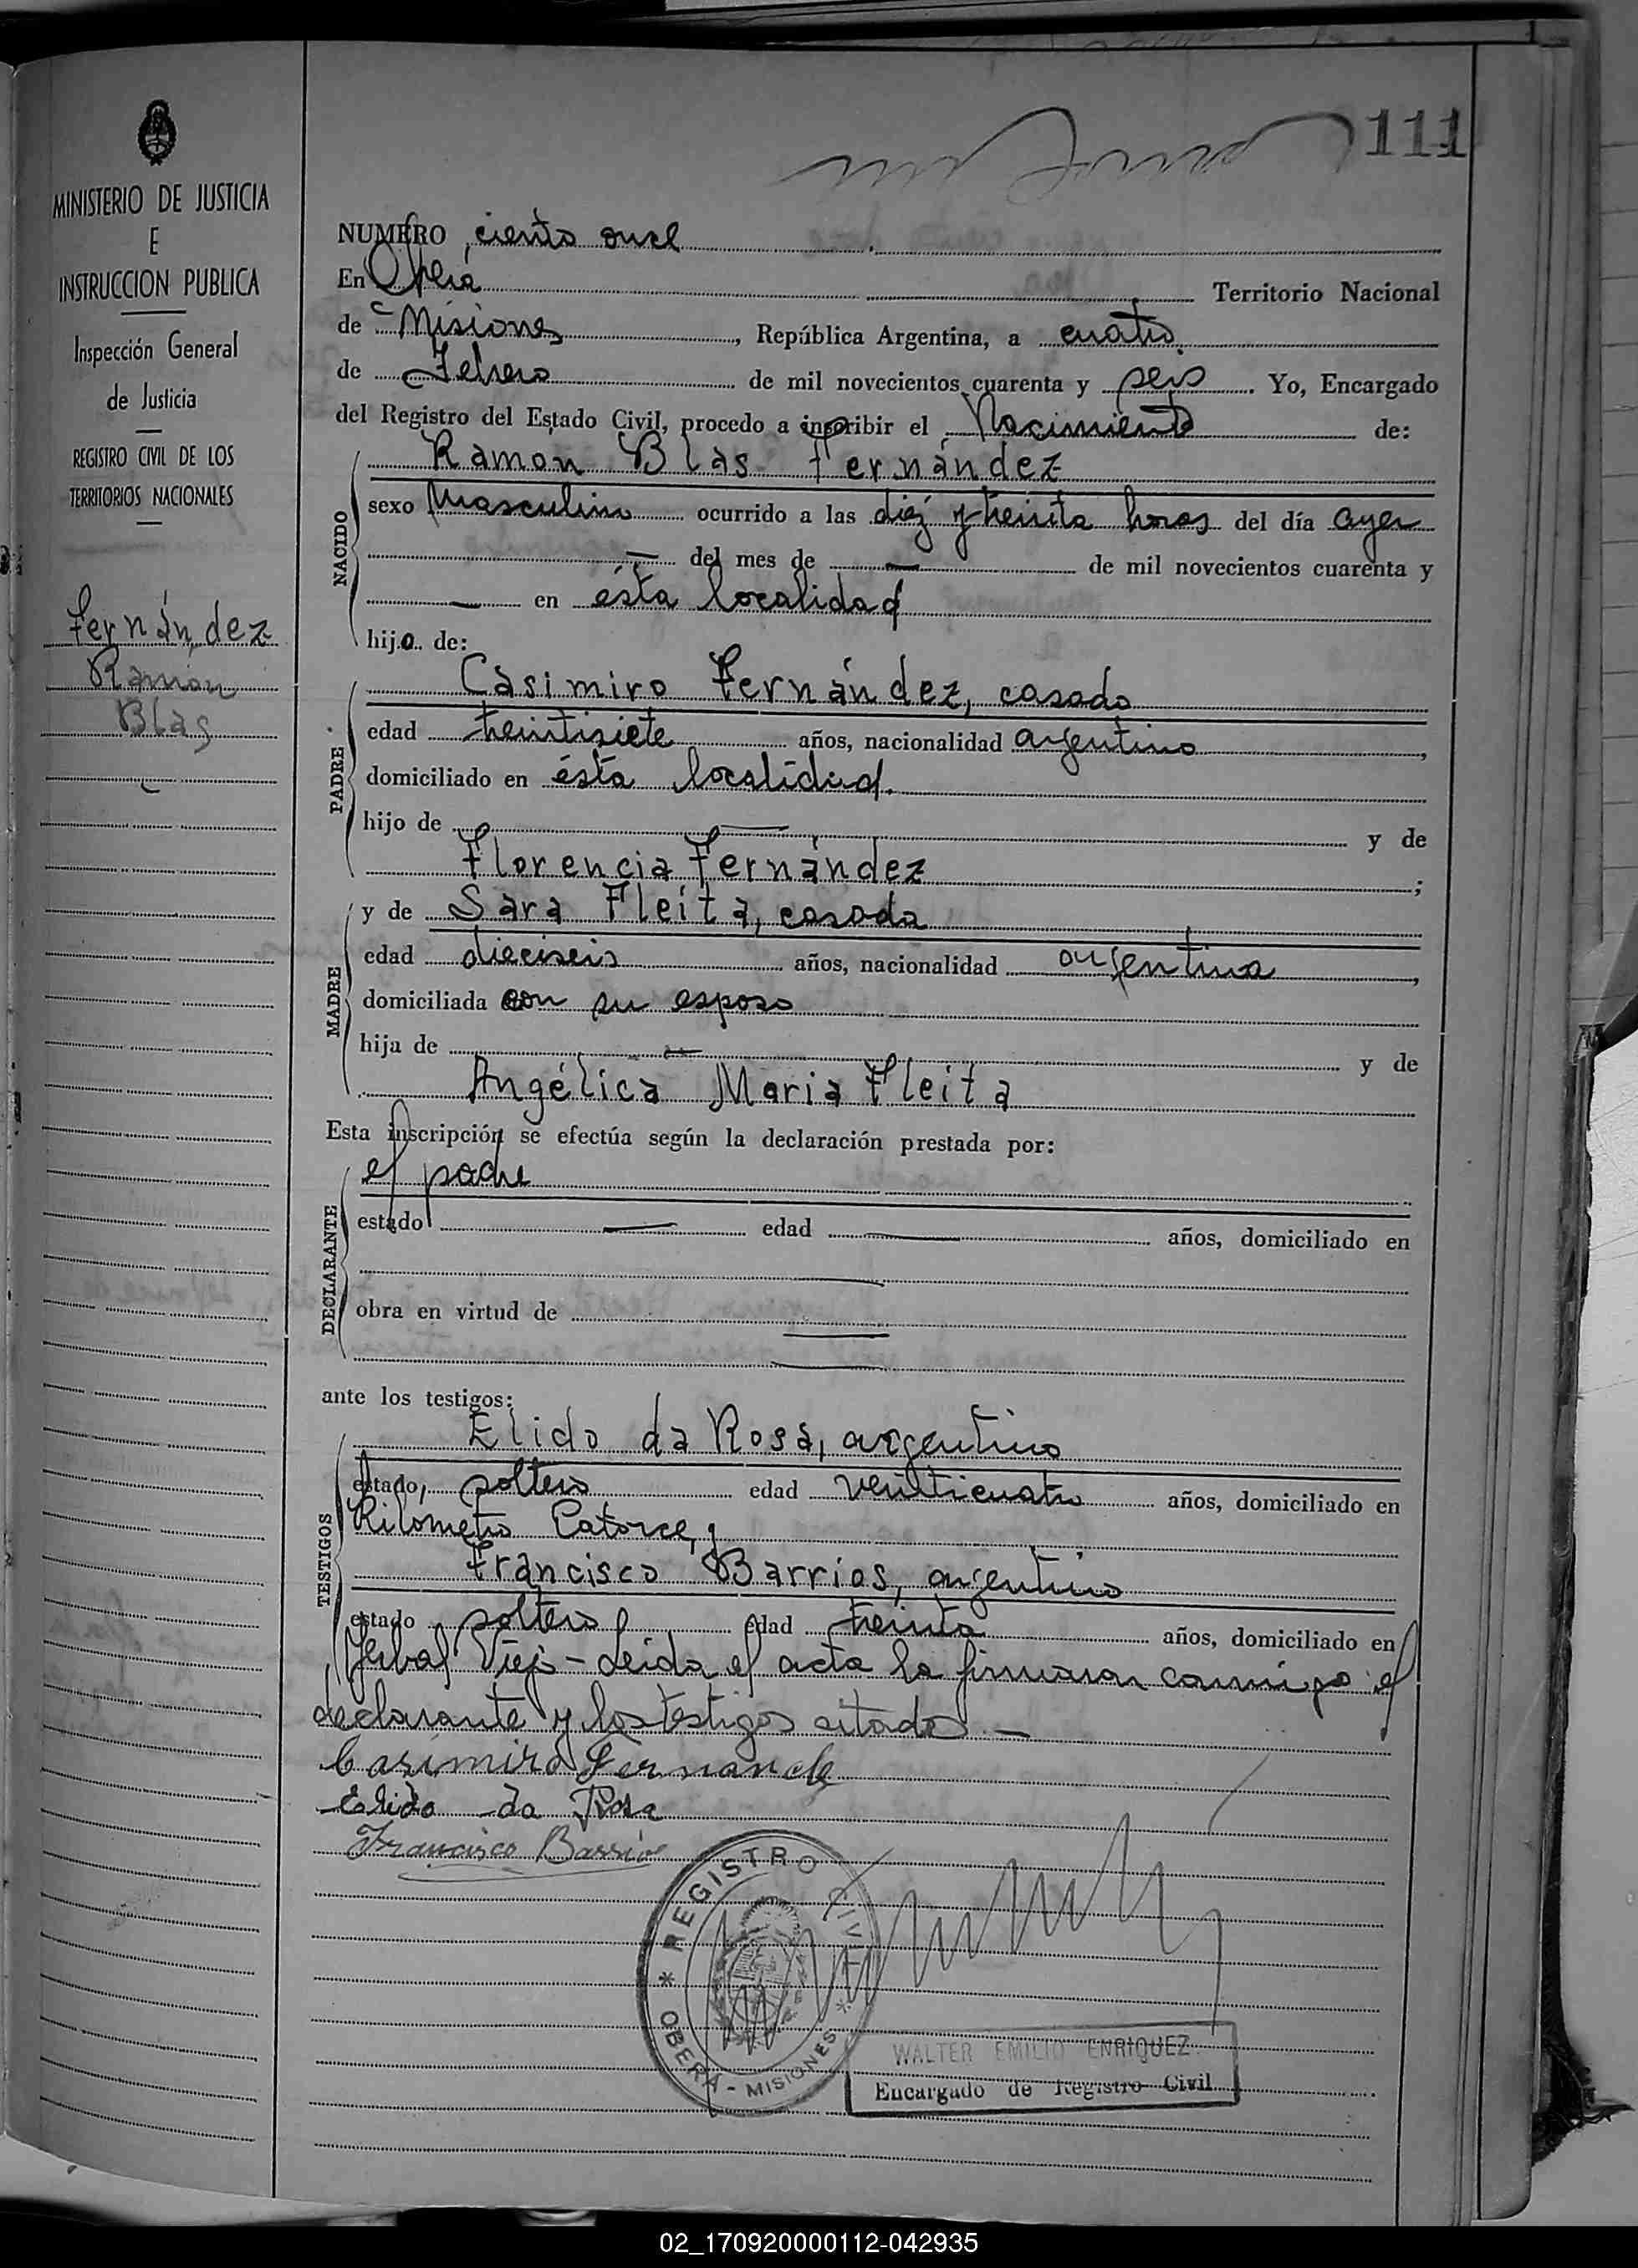 111
MINISTERIO DE JUSTICIA
E
INSTRUCCION PUBLICA
Inspección General
de Justicia
REGISTRO CIVIL DE LOS
TERRITORIOS NACIONALES
Fernández
Ramón
Blas
NUMERO ciento once
En Oberá Territorio Nacional
de Misiones, República Argentina, a cuatro
de Febrero de mil novecientos cuarenta y seis. Yo, Encargado
del Registro del Estado Civil, procedo a inscribir el Nacimiento de:
NACIDO
Ramon Blas Fernández
sexo Masculino ocurrido a las diez y treinta horas del día ayer
— del mes de — de mil novecientos cuarenta y
— en ésta localidad
hijo de:
PADRE
Casimiro Fernández, casado
edad treintisiete años, nacionalidad argentino,
domiciliado en ésta localidad.
hijo de — y de
Florencia Fernández;
MADRE
y de Sara Fleita, casada
edad dieciseis años, nacionalidad argentina,
domiciliada con su esposo
hija de — y de
Angélica Maria Fleita
Esta inscripción se efectúa según la declaración prestada por:
DECLARANTE
el padre
estado — edad — años, domiciliado en
—
obra en virtud de —
—
ante los testigos:
TESTIGOS
Elido da Rosa, argentino
estado, soltero edad veinticuatro años, domiciliado en
Kilometro Catorce, y
Francisco Barrios, argentino
estado soltero edad treinta años, domiciliado en
Yerbal Viejo - Leida el acta la firmaron conmigo el
declarante y los testigos citados —
Casimiro Fernande
Elido da Rosa
Francisco Barrios
* REGISTRO CIVIL *
OBERA - MISIONES
WALTER EMILIO ENRIQUEZ
Encargado de Registro Civil
02_170920000112-042935